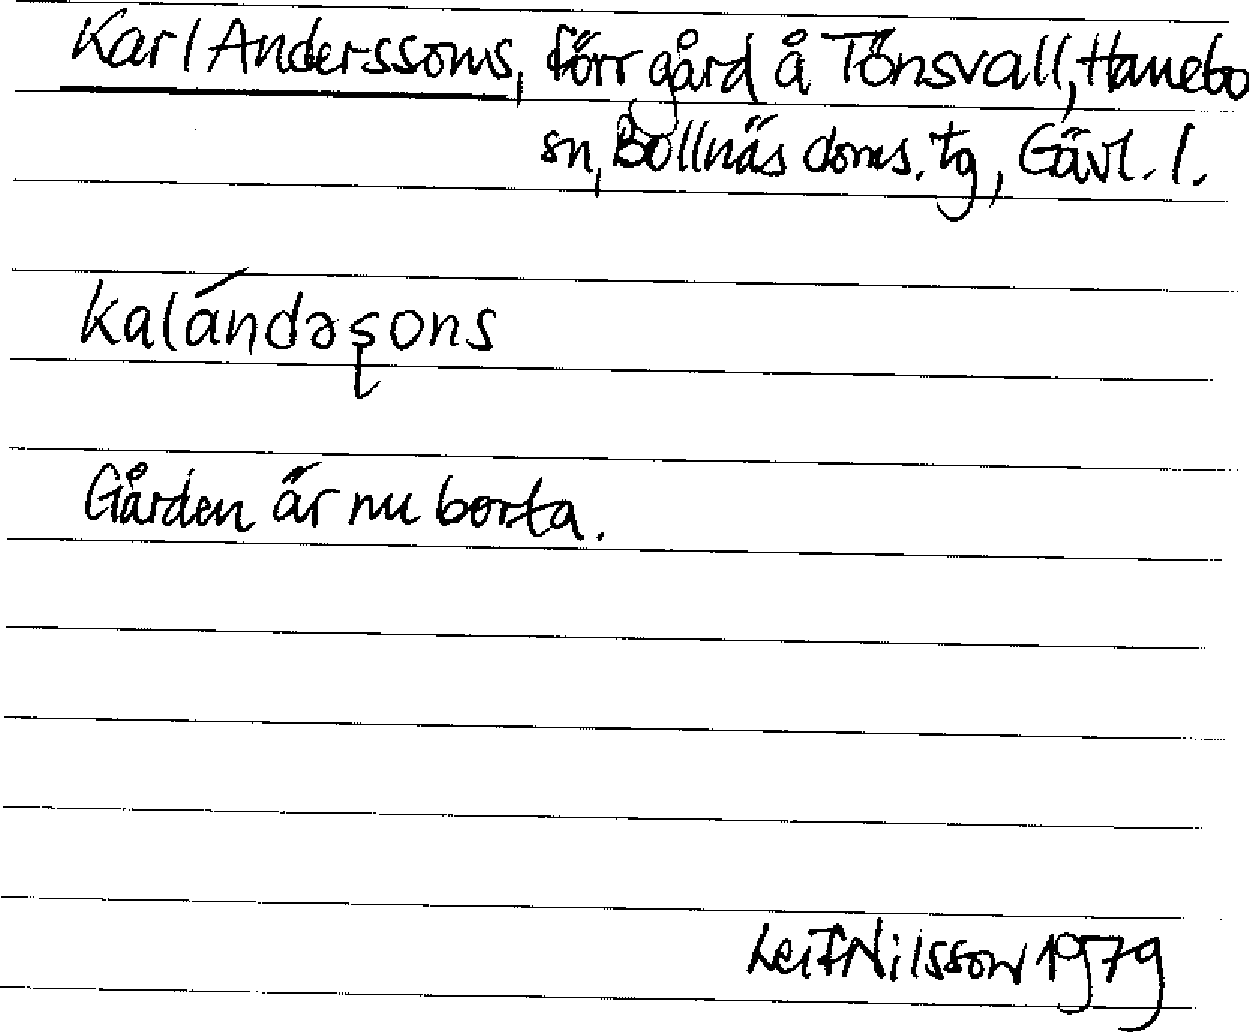 Karl Anderssons, förr gård å Tönsvall, Hanebo
sn, Bollnäs doms. tg, Gävl. l.
kalándəʂons
Gården är nu borta.
Leif Nilsson 1979